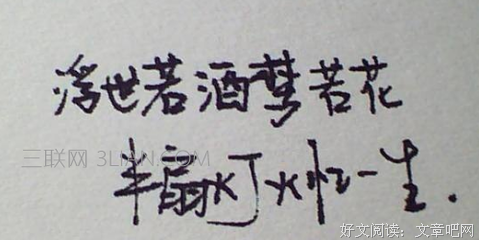 浮世若酒梦若花
三联网 3LIAN.COM
半扇灯火忆一生.
好文阅读：文章吧网